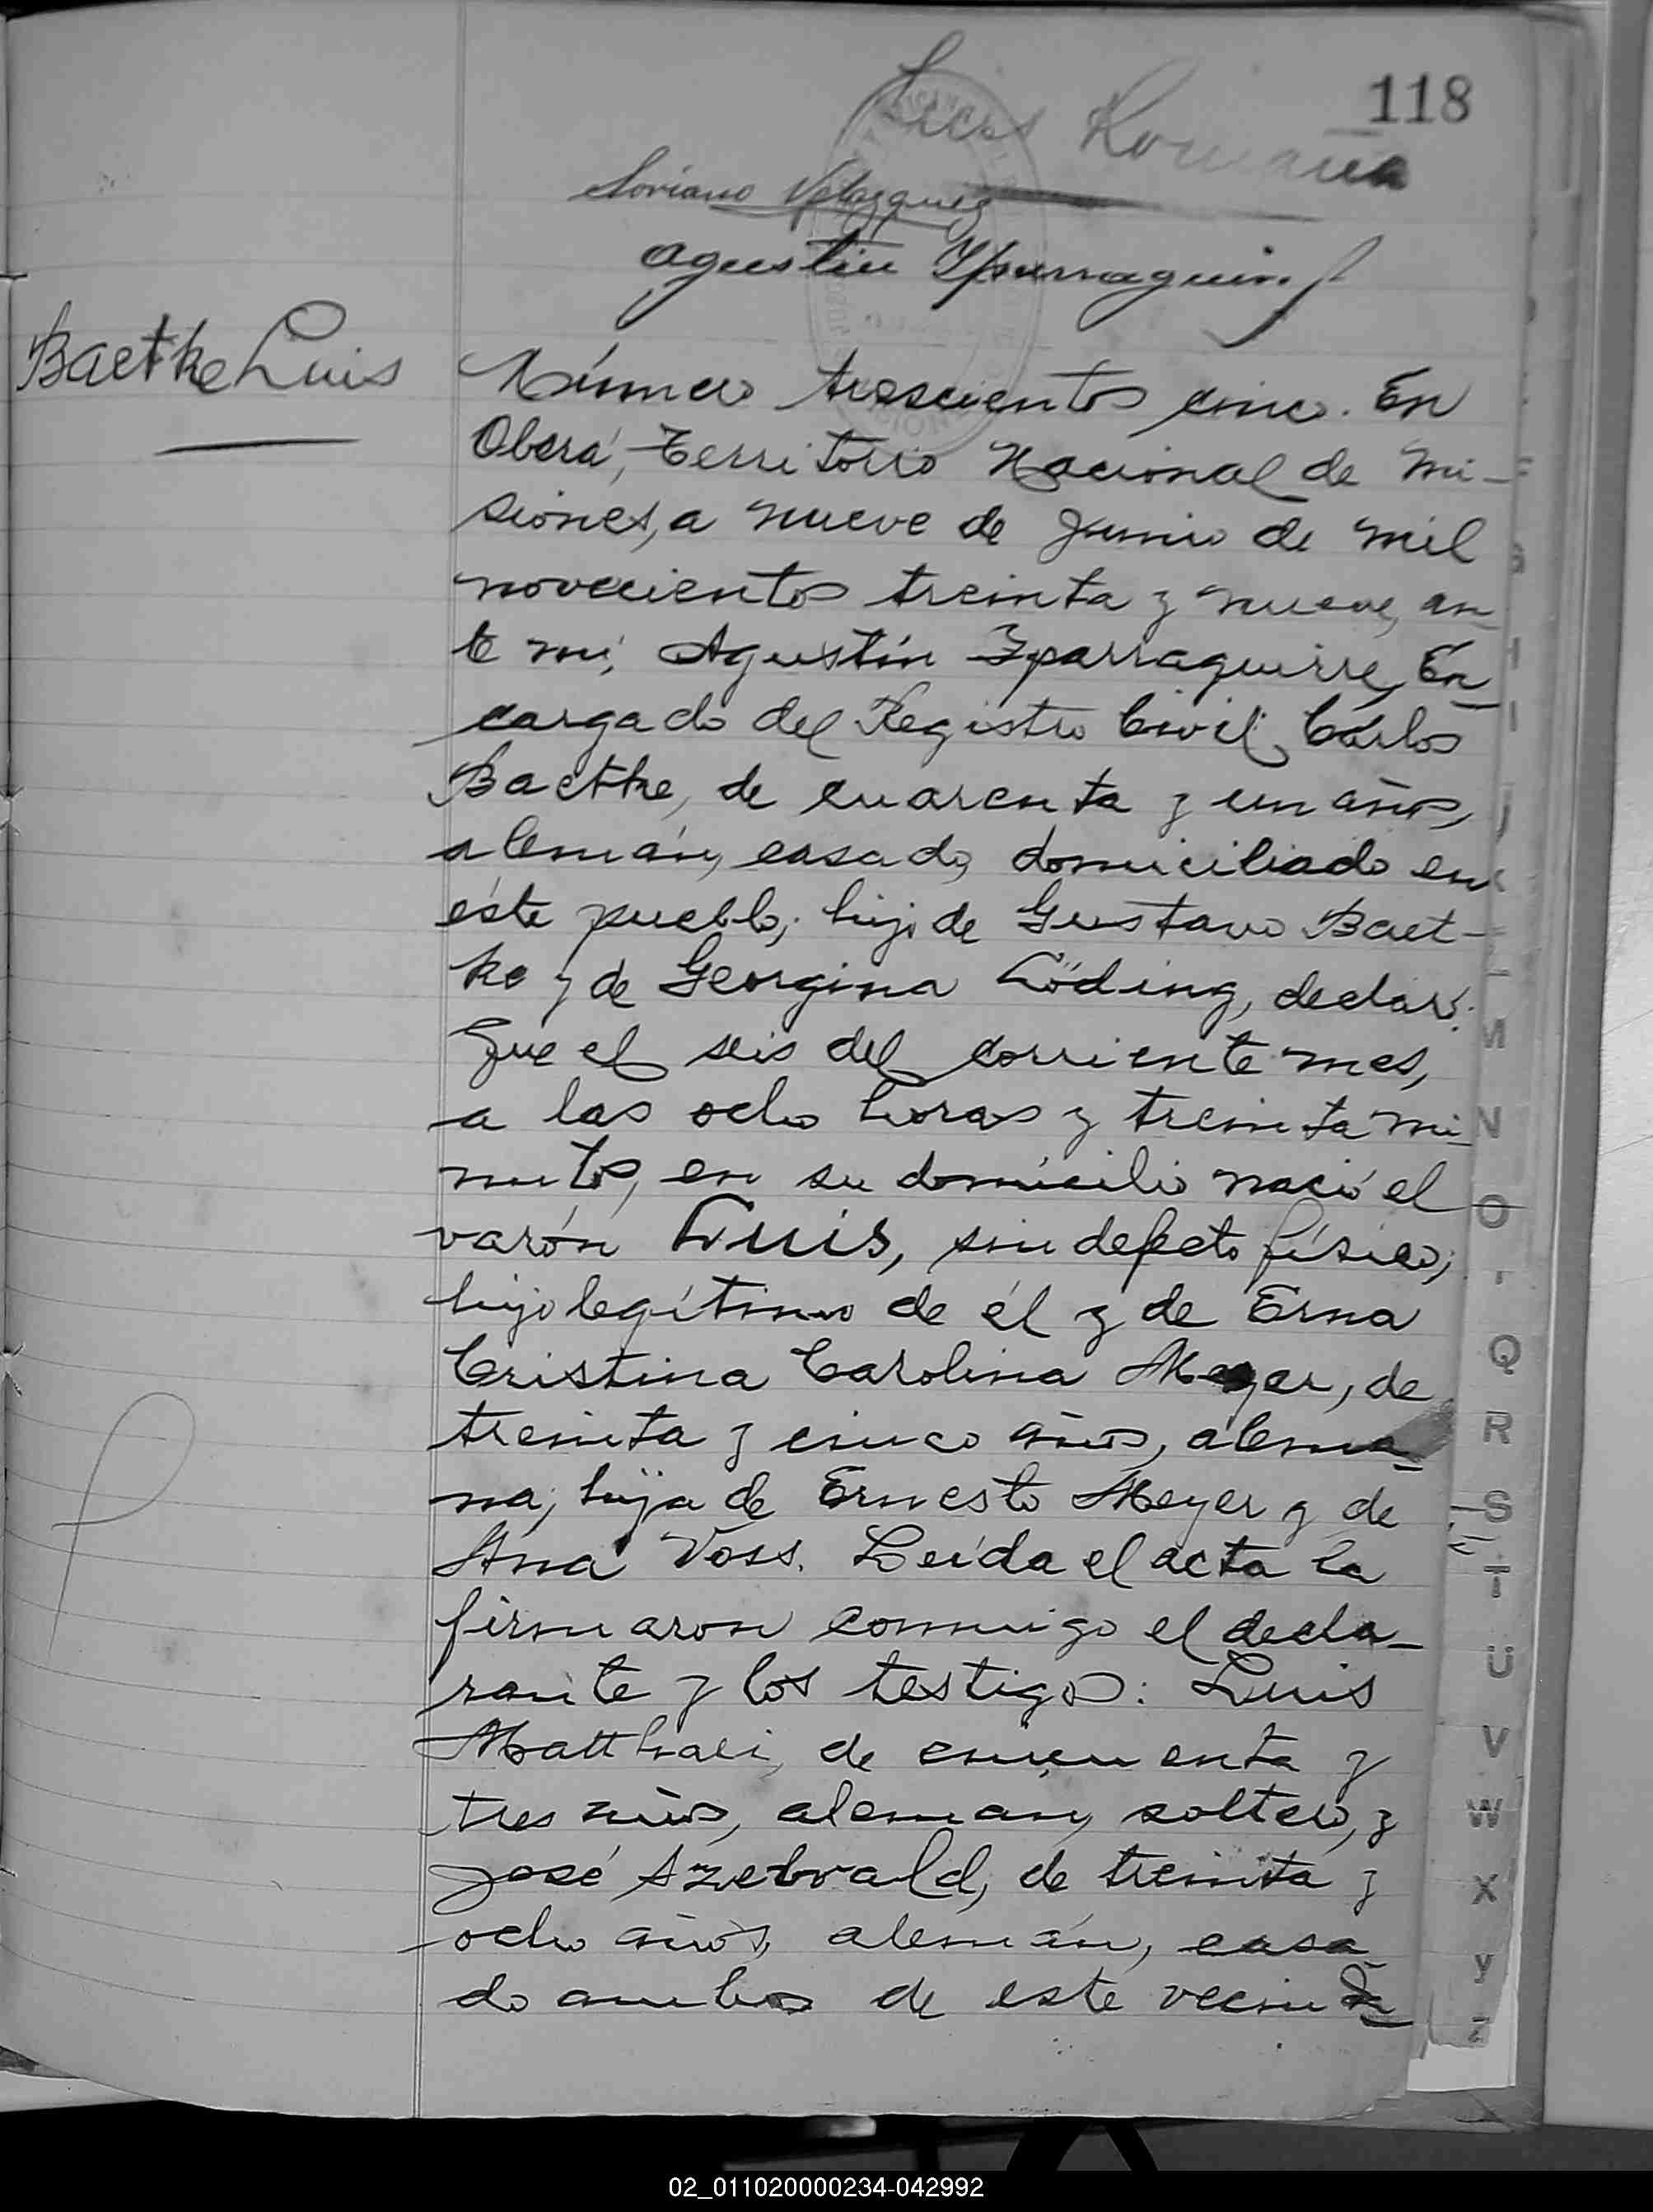 118
Soriano Velazquez
Agustin Yparraguirre
Baethe Luis
Número trescientos cinco. En
Oberá, Territorio Nacional de Mi-
siones, a nueve de Junio de mil
novecientos treinta y nueve, an-
te mí, Agustín Yparraguirre, En-
cargado del Registro Civil, Carlos
Baethe, de cuarenta y un años,
alemán, casado, domiciliado en
éste pueblo; hijo de Gustavo Baet-
ke y de Georgina Löding, declaró:
Que el seis del corriente mes,
a las ocho horas y treinta mi-
nutos, en su domicilio nació el
varón Luis, sin defecto físico;
hijo legítimo de él y de Erna
Cristina Carolina Meyer, de
treinta y cinco años, alema-
na; hija de Ernesto Meyer y de
Ana Voss. Leída el acta la
firmaron conmigo el decla-
rante y los testigos: Luis
Matthaei, de cincuenta y
tres años, alemán, soltero, y
José, de treinta y
ocho años, alemán, casa-
do ambos de este vecinda-
M
N
O
Q
R
S
T
Ü
V
W
X
Y
Z
02_011020000234-042992